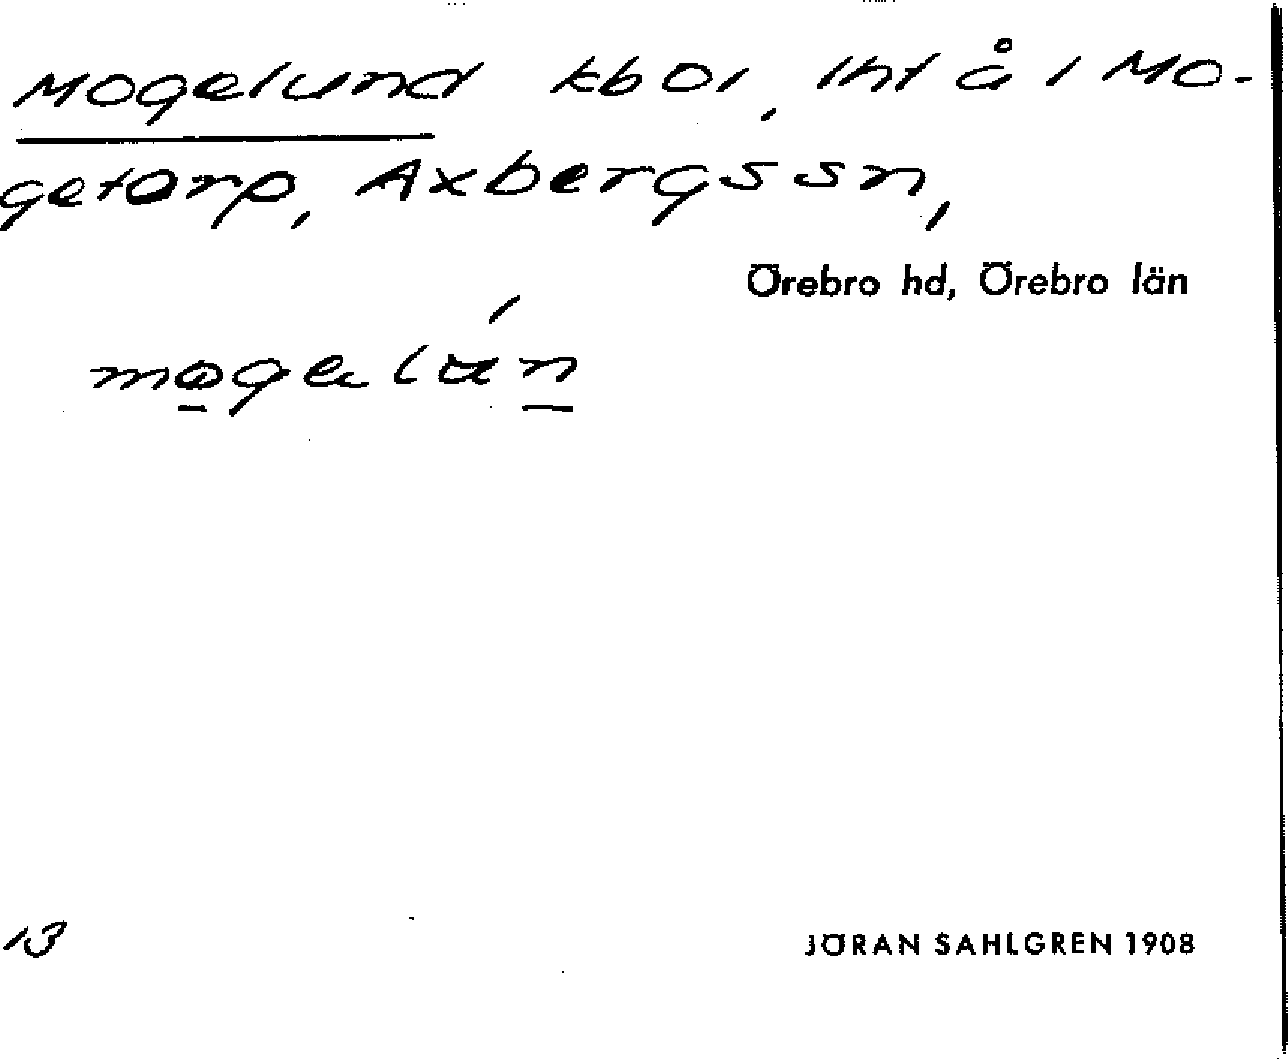 Mogelund kbol, lht å 1 Mo-
getorp, Axbergs sn,
Örebro hd, Örebro län
mogelún
13
JÖRAN SAHLGREN 1908